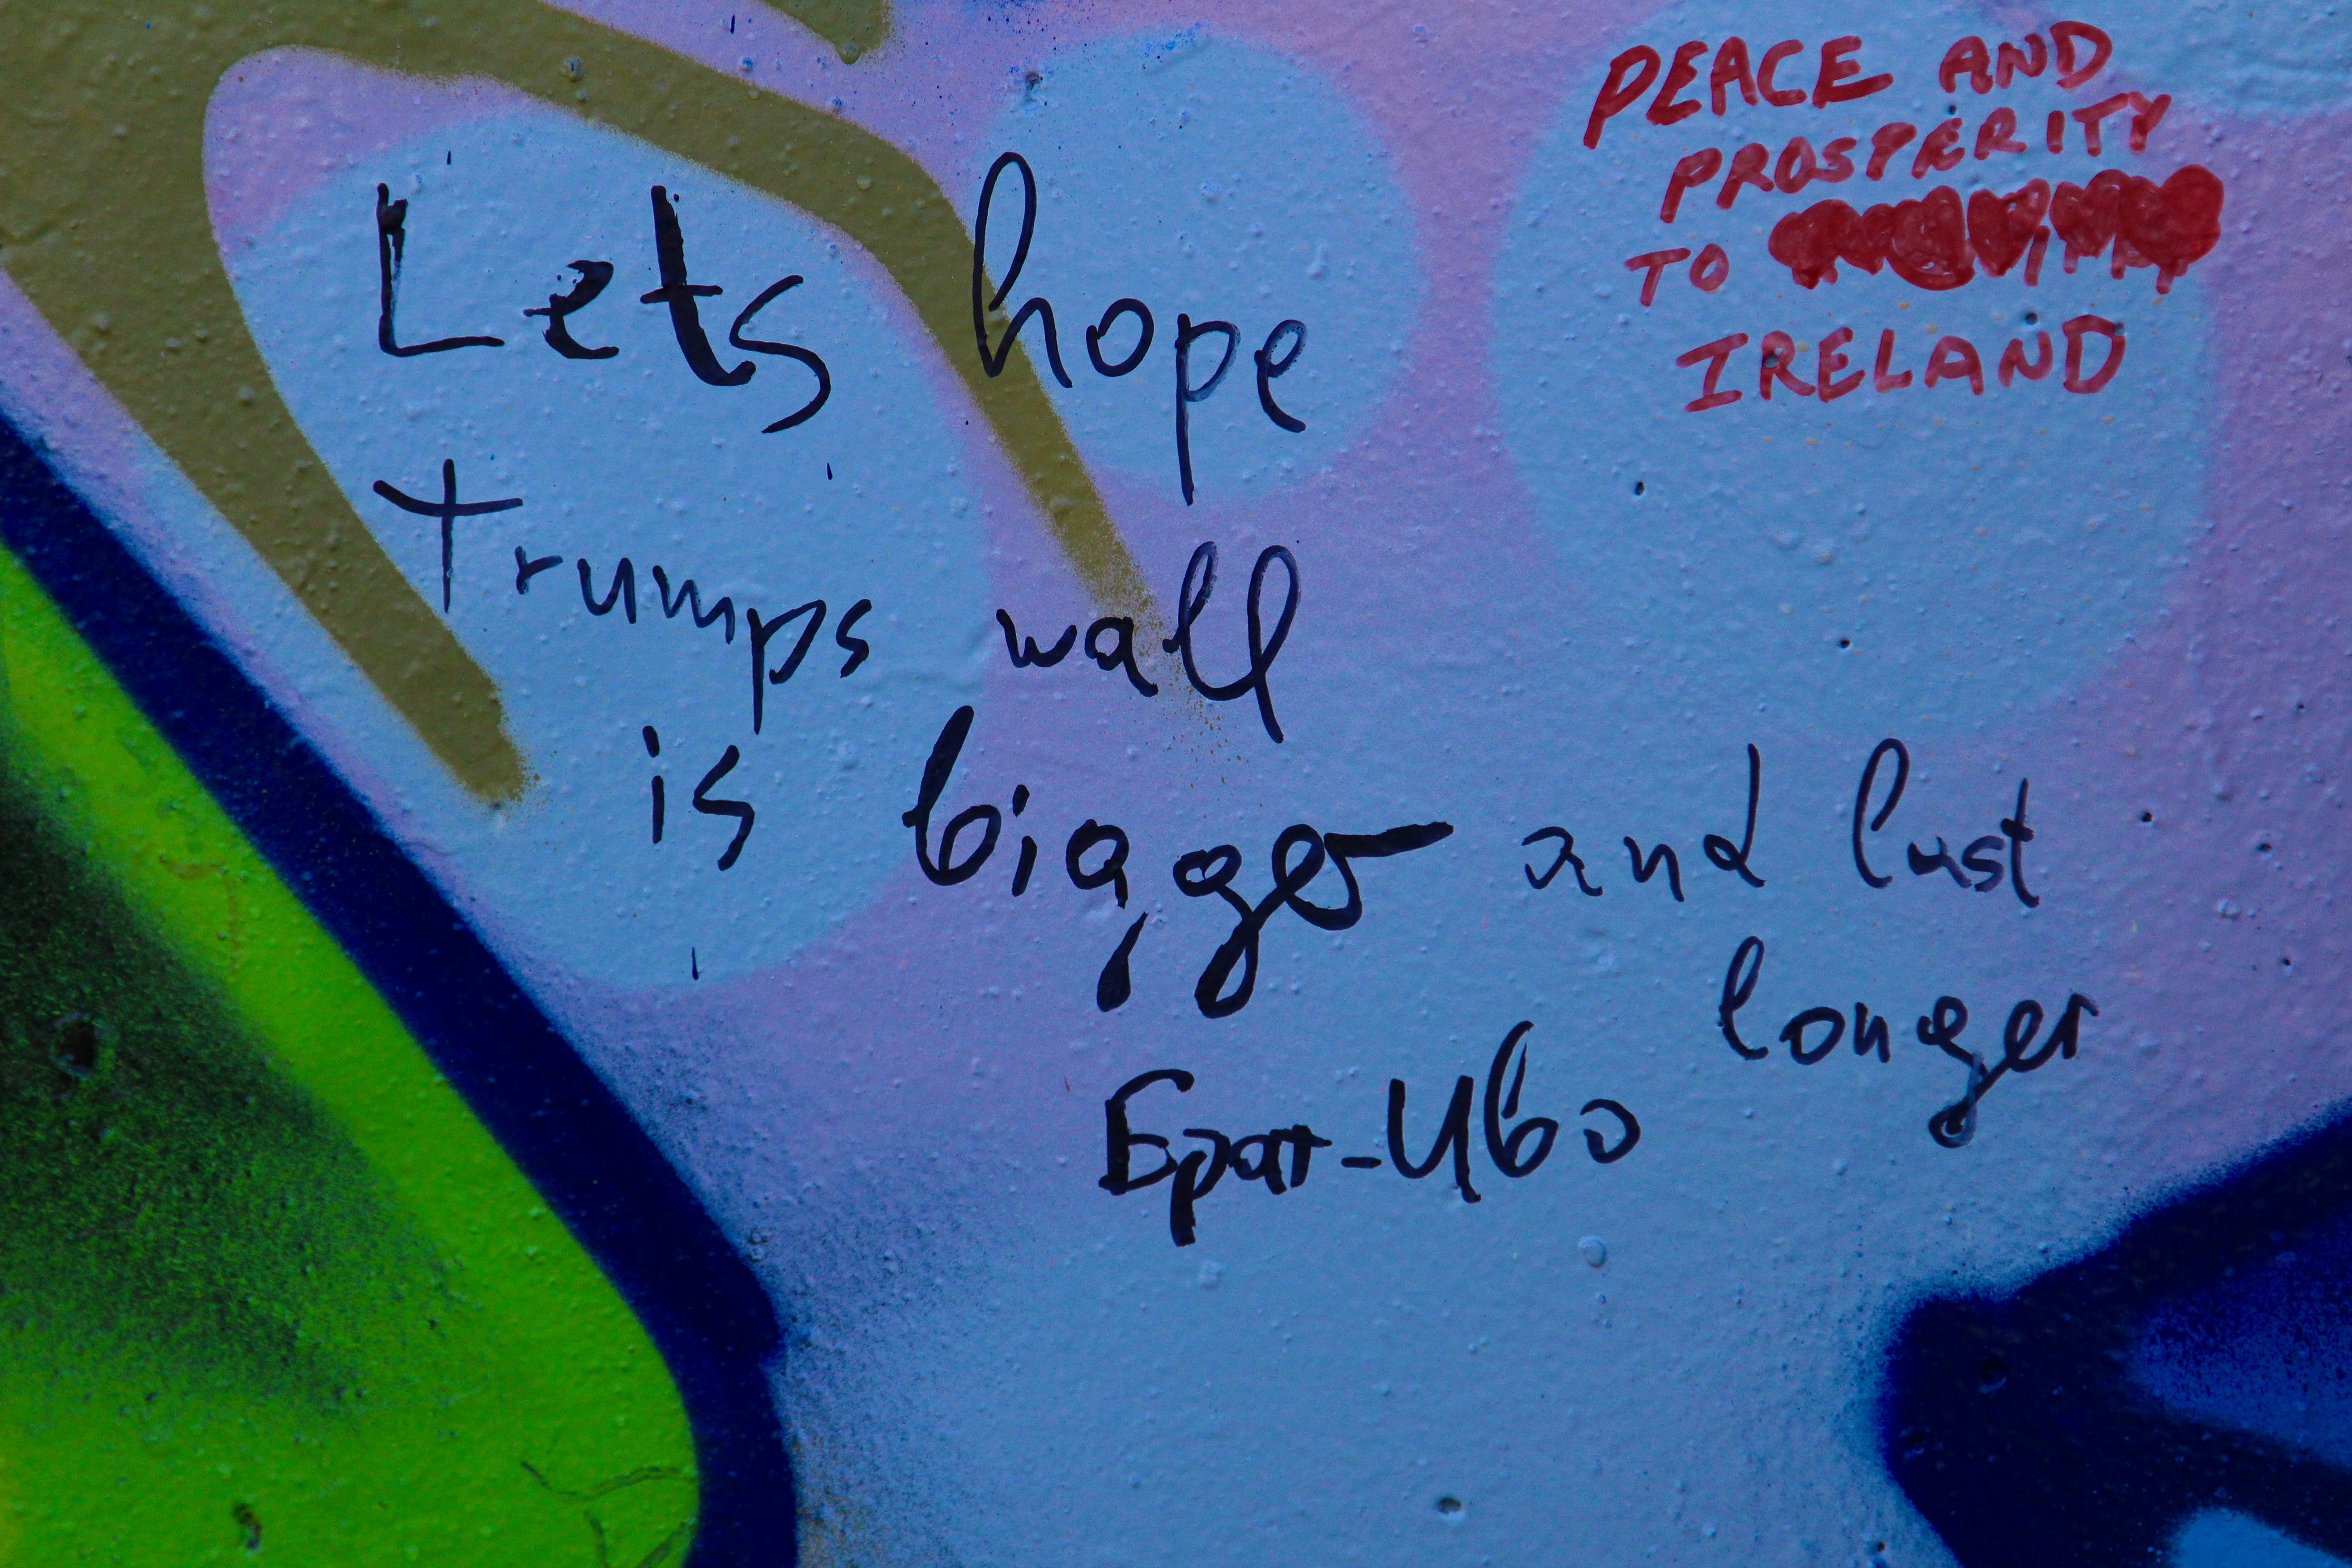 Lets hope
trumps wall
is bigger and last
longer
Брат-Иво
PEACE AND
PROSPERITY
TO
IRELAND